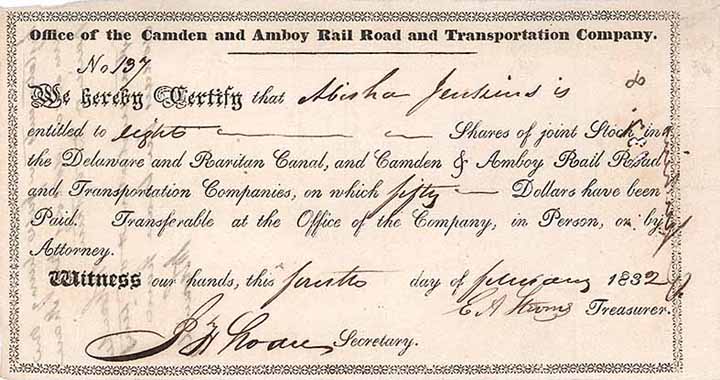 Office of the Camden and Amboy Rail Road and Transportation Company.
No 137
We hereby Certify that Abisha Jenkins is 8
entitled to eight Shares of joint Stock in
the Delaware and Raritan Canal, and Camden & Amboy Rail Road
and Transportation Companies, on which fifty Dollars have been
Paid. Transferable at the Office of the Company, in Person, or by
Attorney.
Witness our hands, this day of february 1832
Treasurer.
Secretary.